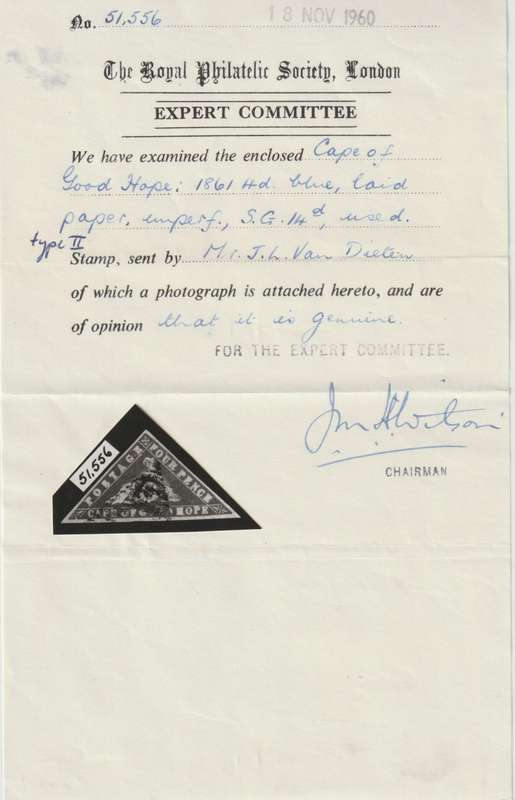 No. 51,556
18 NOV 1960
The Royal Philatelic Society, London
EXPERT COMMITTEE
We have examined the enclosed Cape of
Good Hope: 1861 4d. blue, laid
paper, imperf., S.G. 14d, used.
type II
Stamp, sent by Mr. J.L. Van Dieten
of which a photograph is attached hereto, and are
of opinion that it is genuine.
FOR THE EXPERT COMMITTEE.
Jn HWilson
CHAIRMAN
51,556
POSTAGE
FOUR PENCE
CAPE OF GOOD HOPE